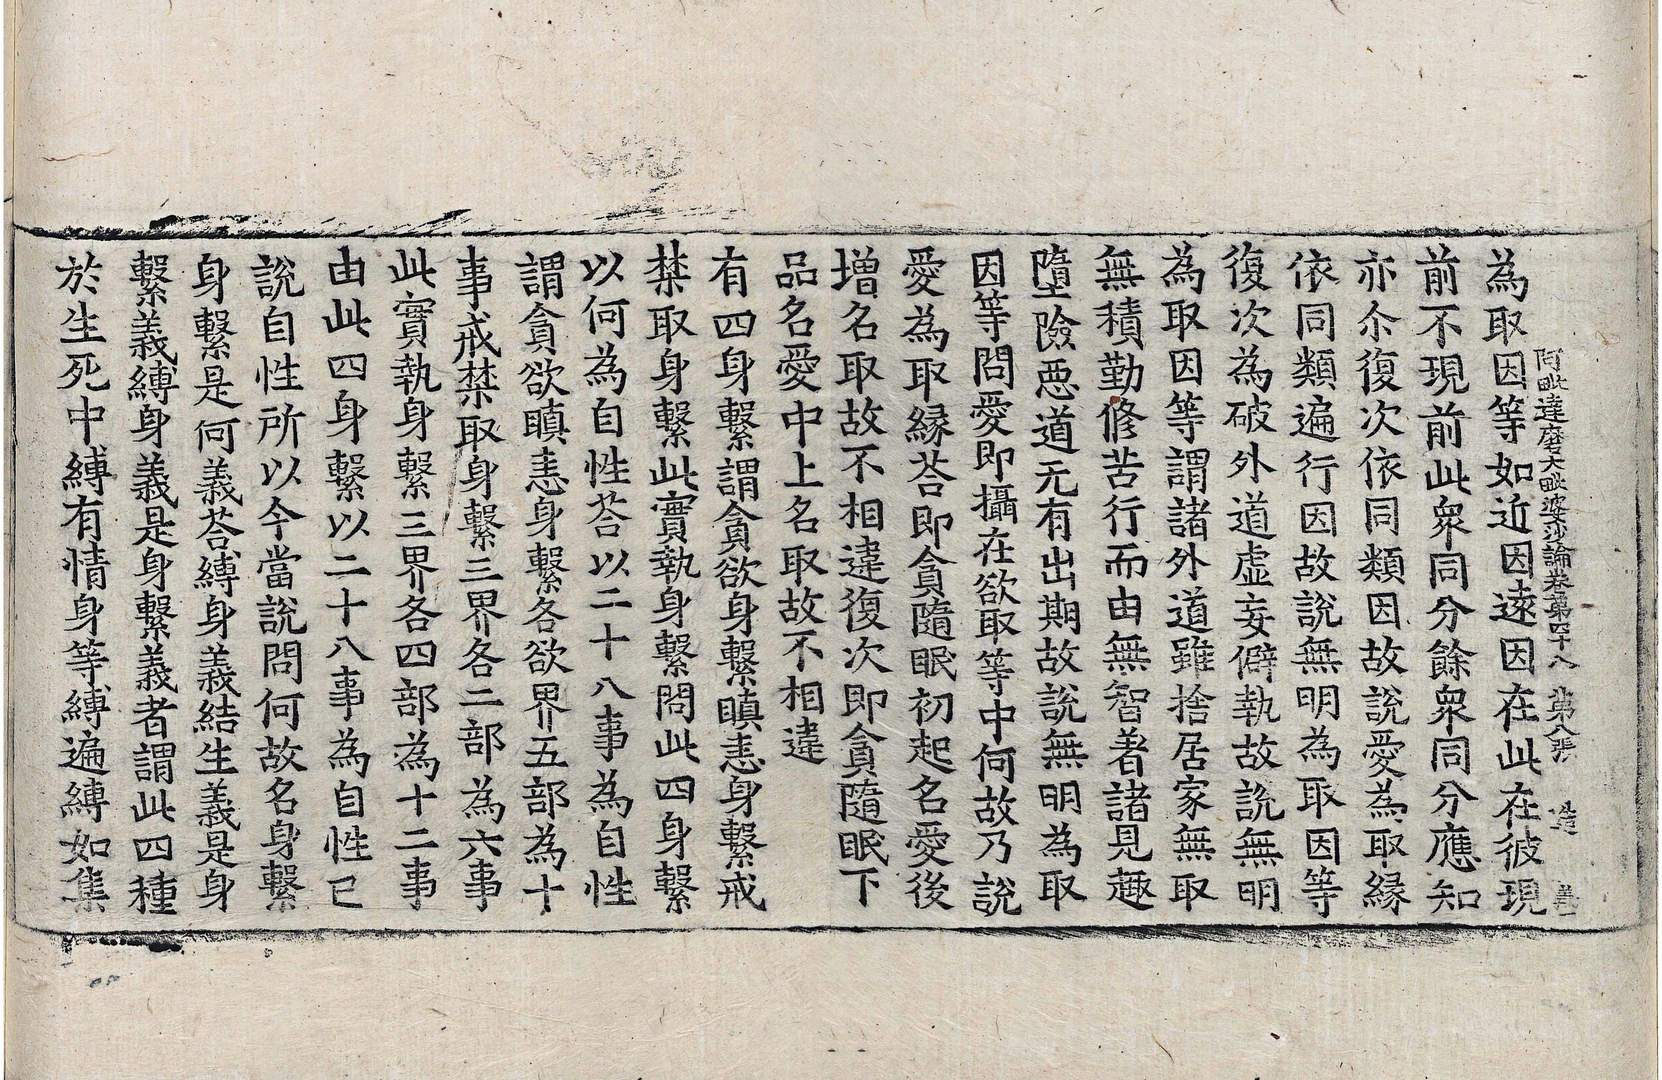 阿毗達磨大毗婆沙論卷第四十八 第八張 造
為取因等如近因遠因在此在彼現
前不現前此衆同分餘衆同分應知
亦尒復次依同類因故說愛為取緣
依同類遍行因故說無明為取因等
復次為破外道虛妄僻執故說無明
為取因等謂諸外道雖捨居家無取
無積勤修苦行而由無智著諸見趣
墮險惡道无有出期故說無明為取
因等問愛即攝在欲取等中何故乃說
愛為取緣荅即貪隨眠初起名愛後
增名取故不相違復次即貪隨眠下
品名愛中上名取故不相違
有四身繫謂貪欲身繫瞋恚身繫戒
禁取身繫此實執身繫問此四身繫
以何為自性荅以二十八事為自性
謂貪欲瞋恚身繫各欲界五部為十
事戒禁取身繫三界各二部為六事
此實執身繫三界各四部為十二事
由此四身繫以二十八事為自性已
說自性所以今當說問何故名身繫
身繫是何義荅縛身義結生義是身
繫義縛身義是身繫義者謂此四種
於生死中縛有情身等縛遍縛如集